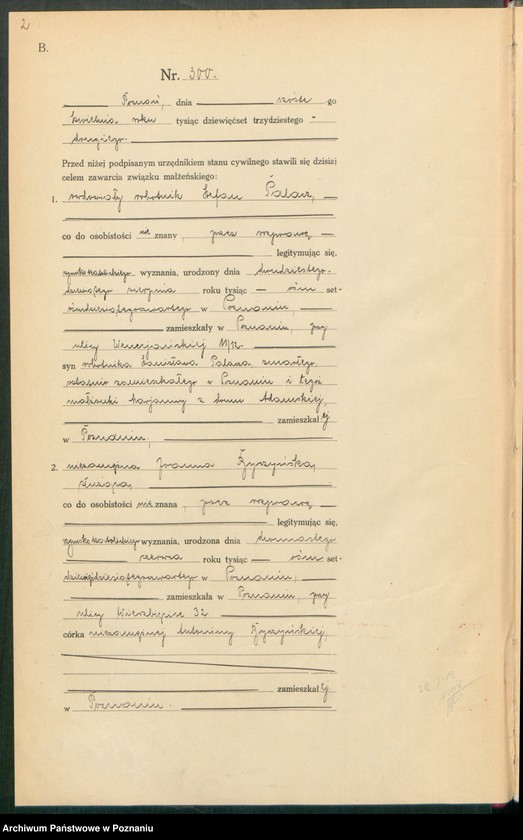 2
B.
Nr. 300.
Poznań, dnia szóste go
kwietnia roku tysiąc dziewięćset trzydziestego
drugiego.
Przed niżej podpisanym urzędnikiem stanu cywilnego stawili się dzisiaj
celem zawarcia związku małżeńskiego:
1. robotnik Stefan Palacz,
co do osobistości nie znany, przez rozprawę
legitymując się,
rzymskokatolickiego wyznania, urodzony dnia dwudziestego-
dziewiątego sierpnia roku tysiąc ośm set-
w Poznaniu,
zamieszkały w Poznaniu, przy
ulicy Wenecjańskiej 11/12.
syn robotnika Stanisława Palacza, zmarłego,
ostatnio zamieszkałego w Poznaniu i tegoż
małżonki Marjanny z domu Adamskiej,
zamieszkałej
w Poznaniu,
2. niezamężna Joanna
służąca,
co do osobistości nie znana, przez rozprawę
legitymując się,
rzymskokatolickiego wyznania, urodzona dnia
czerwca roku tysiąc ośm set-
dziewięćdziesiątegoczwartego w Poznaniu,
zamieszkała w Poznaniu, przy
ulicy Wierzbięcice 32
córka niezamężnej
zamieszkałej
w Poznaniu.
Archiwum Państwowe w Poznaniu